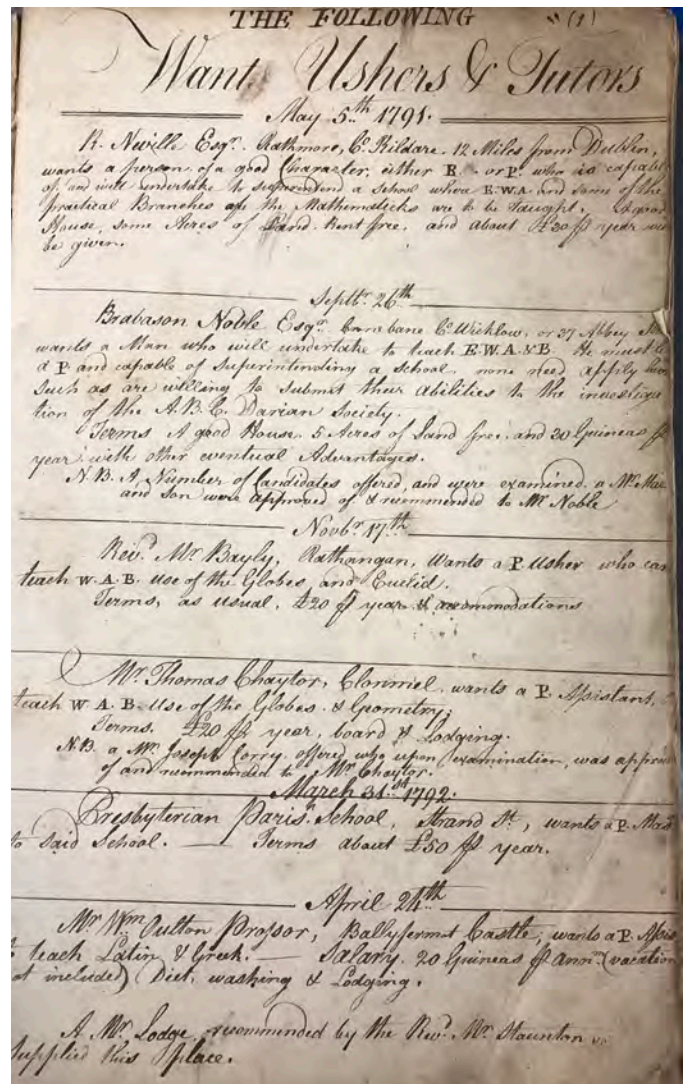 THE FOLLOWING (1)
Want Ushers & Tutors
May 5.th 1791.
R. Neville Esqr. Rathmore, Co. Kildare. 12 Miles from Dublin,
wants a person of a good Character, either R. or P. who is capable
of, and will undertake to superintend a school where E.W.A. and some of the
practical Branches of the Mathematicks are to be taught. A good
House, some Acres of Land Rent free, and about £30 pr year will
be given.
Septbr. 26th
Brabason Noble Esqr. Co. Wicklow, or 37 Abbey
wants a Man who will undertake to teach E.W.A. & B. He must be
a P. and capable of Superintending a school. none need apply but
such as are willing to submit their abilities to the investiga
tion of the A.B.C. Darian Society.
Terms A good House. 5 Acres of Land free, and 30 Guineas pr
year with other eventual Advantages.
N.B. A Number of Candidates offered, and were examined, a Mr.
and son were approved of & recommended to Mr. Noble
Novbr. 17th
Revd. Mr. Bayly, Rathangan, Wants a P. Usher who can
teach W.A.B. Use of the Globes, and Euclid.
Terms, as usual, £20 pr year & accommodations
Mr. Thomas Chaytor, Clonmel, wants a P. Assistant,
teach W.A.B. Use of the Globes. & Geometry;
Terms. £20 pr year, board & Lodging.
N.B. a Mr. Joseph Corry offered who upon examination, was approv
of and recommended to Mr. Chaytor.
March 31.st 1792.
Presbyterian Parish School, Strand St, wants a P. Mas
to said School. — Terms about £50 pr year.
April 24th
Mr. Wm. Oulton Prossor, Ballyfermot Castle, wants a P. Assis
teach Latin & Greek. — Salary. 20 Guineas pr Ann. (vacation
ot included) Diet, washing & Lodging.
A Mr. Lodge, recommended by the Revd. Mr. Staunton
supplied this place.